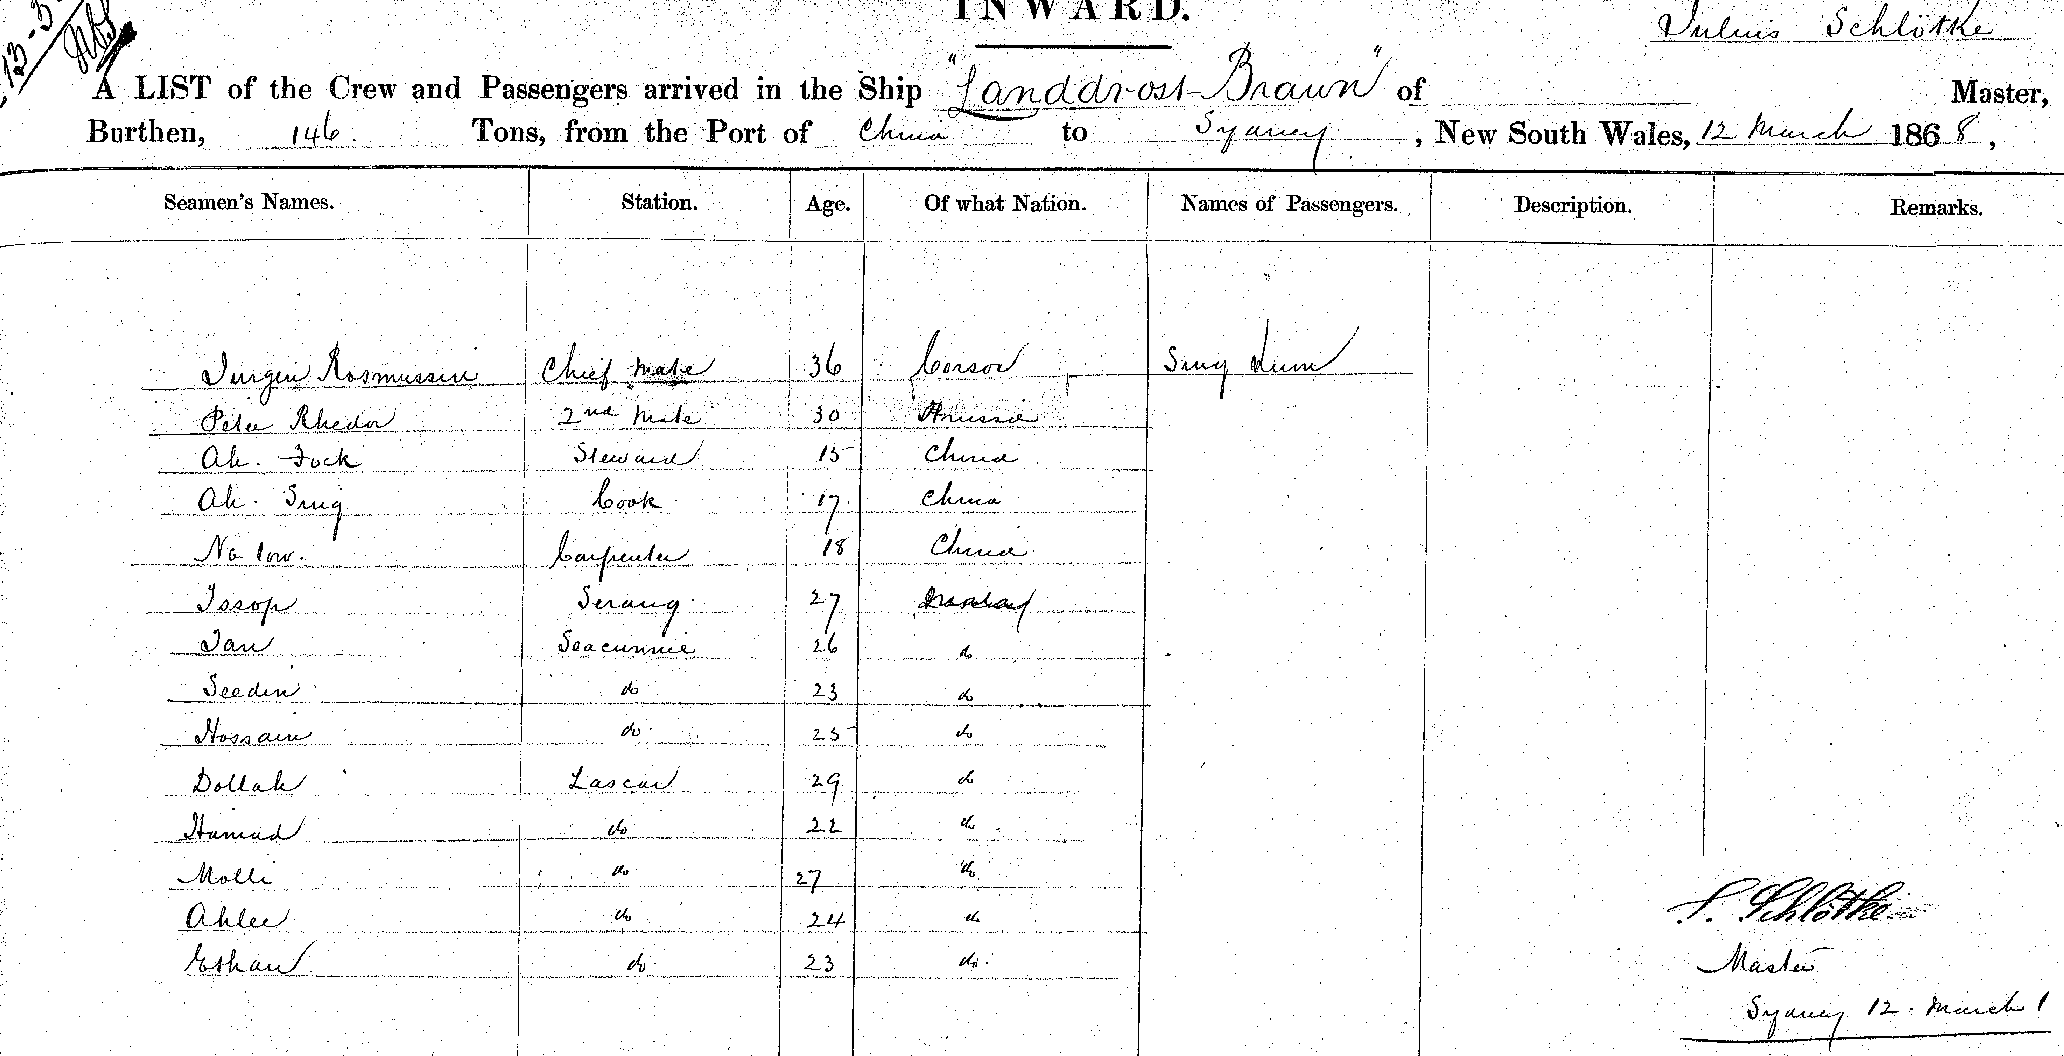 INWARD.
Julius Schlötke
A LIST of the Crew and Passengers arrived in the Ship "Landdrost Braun" of Master,
Burthen, 146 Tons, from the Port of China to Sydney, New South Wales, 12 March 1868,
Seamen's Names. Station. Age. Of what Nation. Names of Passengers. Description. Remarks.
Jurgen Rasmussen Chief Mate 36 Sing Kum
Peter Rhedor 2nd Mate 30 Prussia
Ah. Fock Steward 15 China
Ah. Sing Cook 17 China
Na low. Carpenter 18 China
Issop Serang 27
Jan Seacunnie 26 do
Seedin do 23 do
Hossain do 25 do
Dollah Lascar 29 do
Hamad do 22 do
Molli do 27 do
Ahlee do 24 do
Eshan do 23 do.
J. Schlötke
Master
Sydney 12. March 1